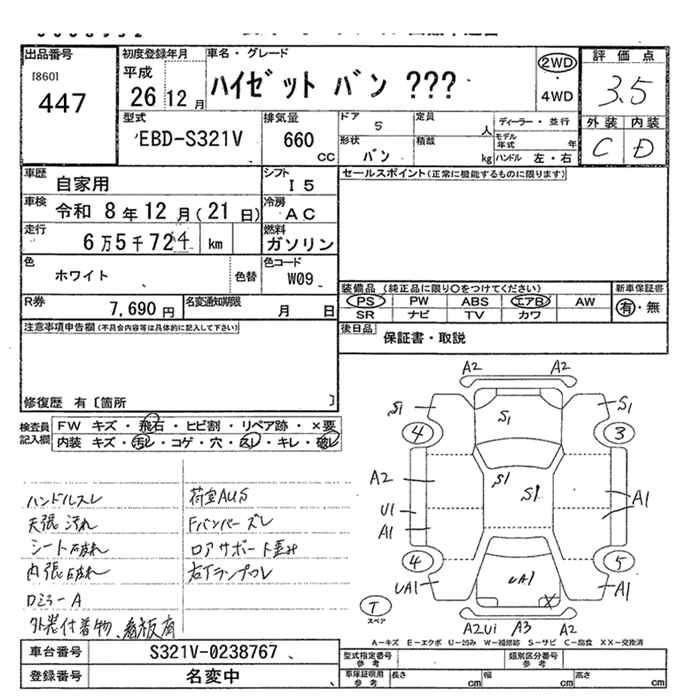 出品番号
[860]
447
初度登録年月
平成
26 12 月
車名・グレード
ハイゼット バン ???
2WD
4WD
評価点
3.5
外装 内装
C D
型式
EBD-S321V
排気量
660
cc
ドア
5
定員
人
ディーラー・並行
モデル年式
年
形状
バン
積載
kg
ハンドル 左・右
車歴
自家用
シフト
I5
セールスポイント(正常に機能するものに限ります)
車検
令和 8年12月(21日)
冷房
AC
走行
6万5千724 km
燃料
ガソリン
色
ホワイト
色替
色コード
W09
装備品 (純正品に限り○をつけてください)
新車保証書
PS PW ABS エアB AW
SR ナビ TV カワ
有・無
R券
7,690円
名変通知期限
月 日
後日品
保証書・取説
注意事項申告欄(不具合内容等は具体的に記入して下さい)
修復歴 有〔箇所 〕
検査員記入欄
FW キズ・飛石・ヒビ割・リペア跡・×要
内装 キズ・汚レ・コゲ・穴・スレ・キレ・破レ
ハンドルスレ
荷室AUS
天張汚れ
Fバンパーズレ
シート破れ
ロアサポート歪み
内張破れ
右Tランプワレ
DミラーA
外装付着物、看板痕
A2 A2
S1 S1 S1
4 3
A2 S1 S1
U1 A1
A1
4 5
UA1 UA1 A1
X
T
スペア
A2U1 A3 A2
A−キズ E−エクボ U−凹み W−補修跡 S−サビ C−腐食 XX−交換済
車台番号
S321V-0238767
型式指定番号
参考
類別区分番号
参考
登録番号
名変中
車庫証明用
参考
長さ
cm
幅
cm
高さ
cm